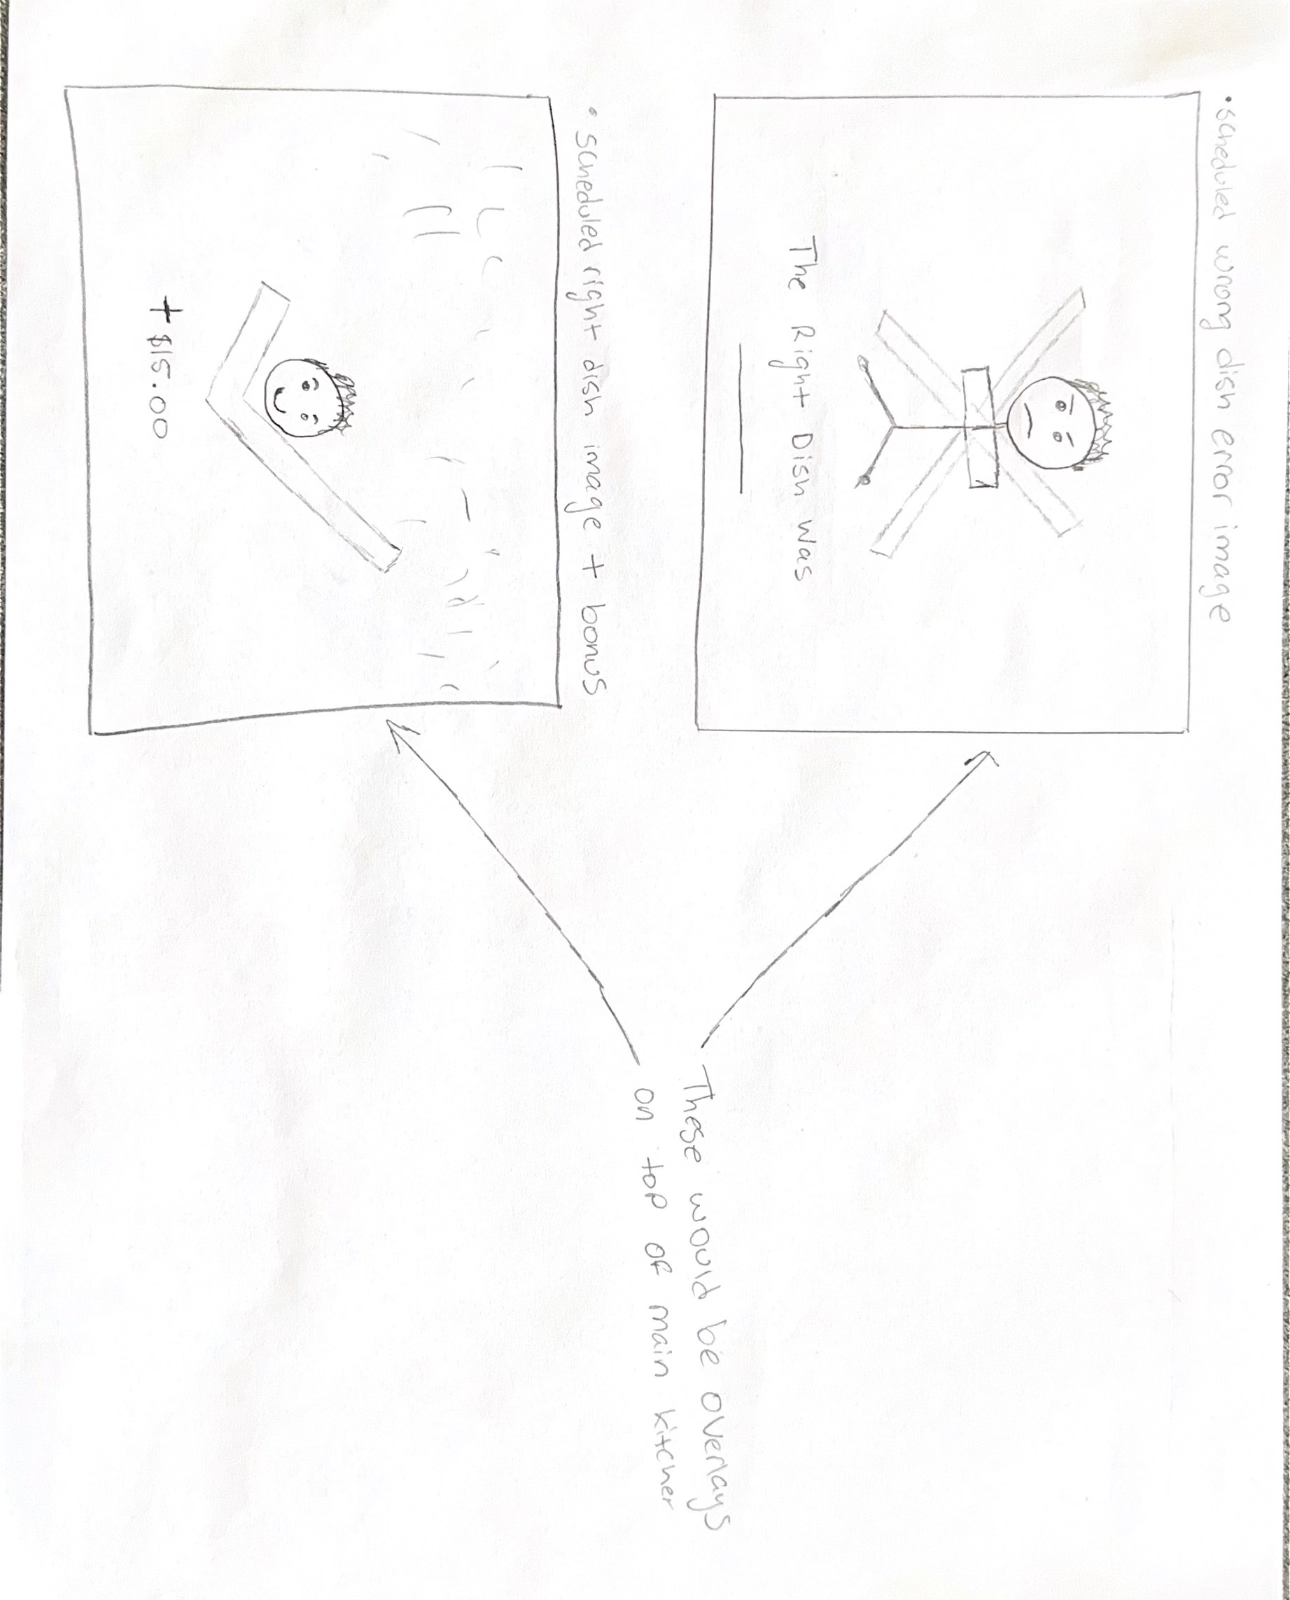 • scheduled wrong dish error image
The Right Dish Was
• scheduled right dish image + bonus
+ $15.00
These would be overlays
on top of main kitchen